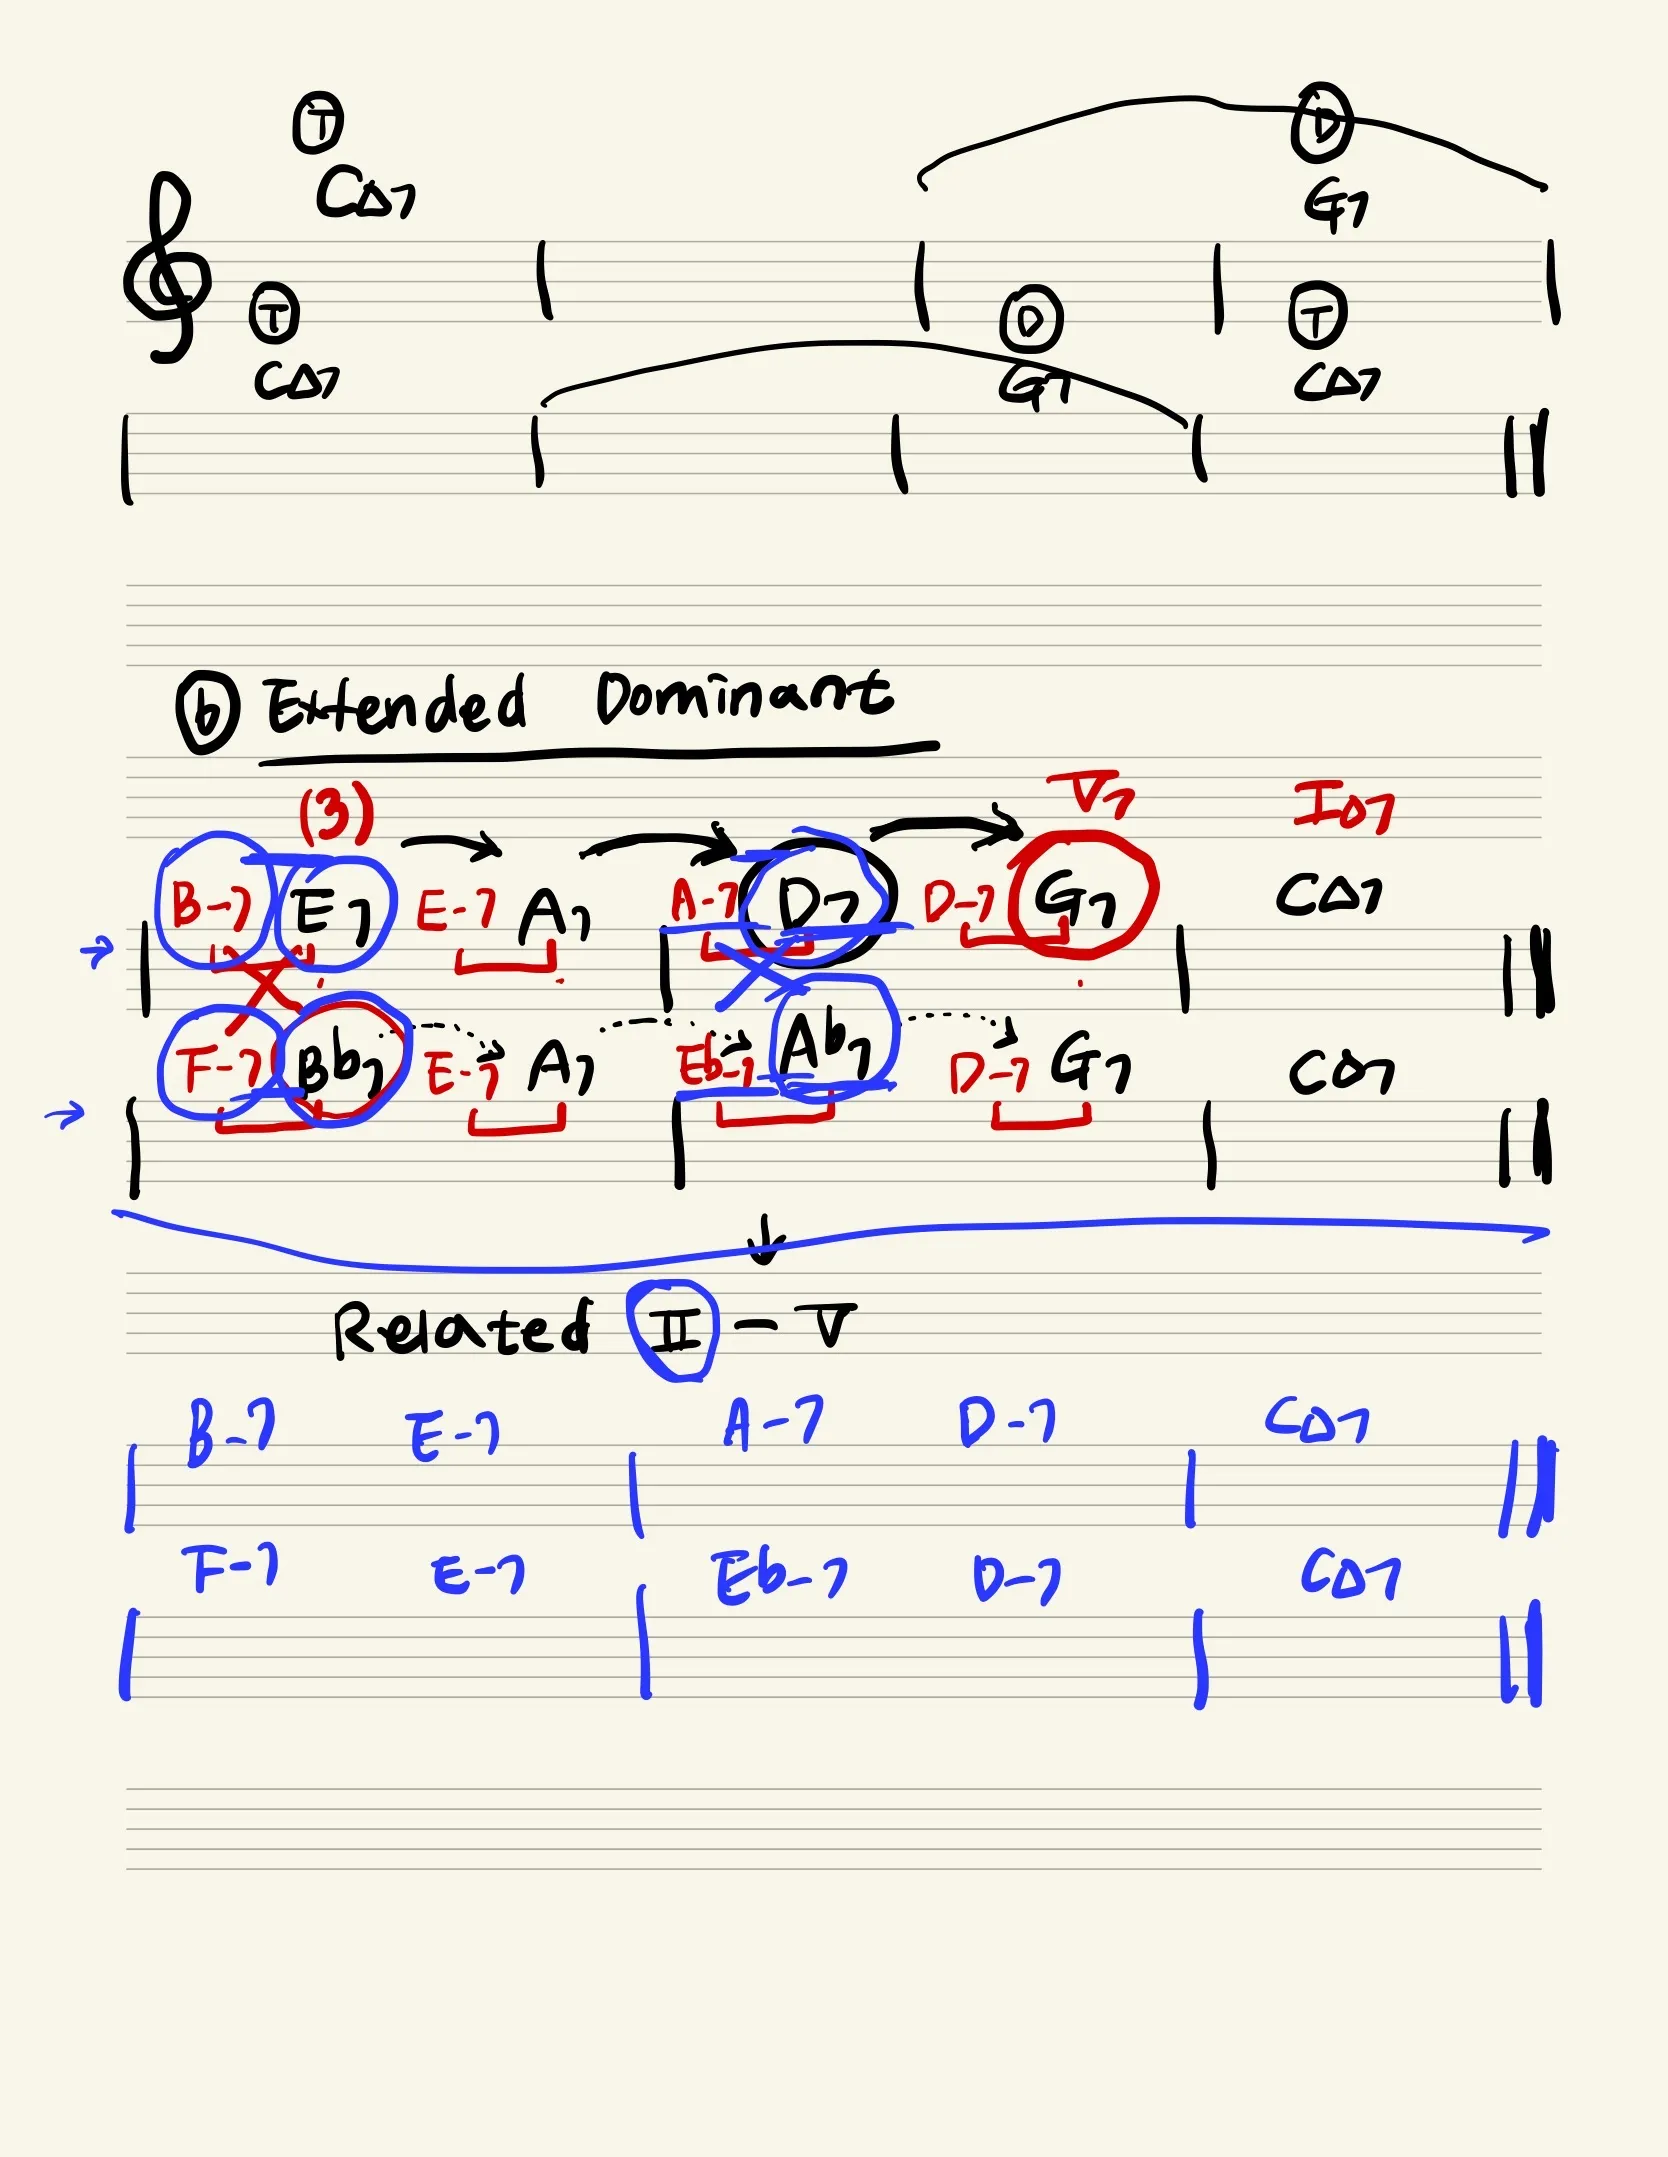 T D
C△7 G7
T D T
C△7 G7 C△7
b Extended Dominant
(3) V7 I△7
B-7 E7 E-7 A7 A-7 D7 D-7 G7 C△7
F-7 Bb7 E-7 A7 Eb-7 Ab7 D-7 G7 C△7
Related II - V
B-7 E-7 A-7 D-7 C△7
F-7 E-7 Eb-7 D-7 C△7